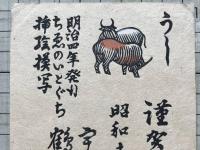 うし
謹賀
昭和
明治四年発行
ちゑのいとぐち
挿絵模写
鶴